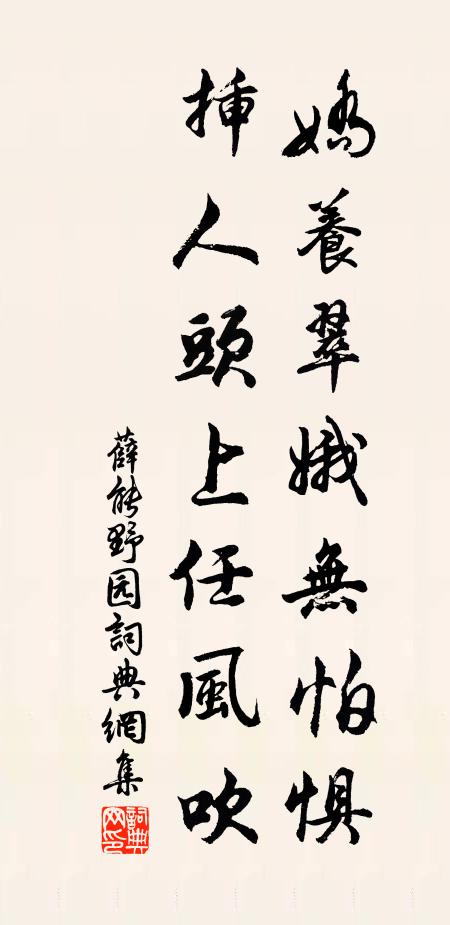 嬌養翠娥無怕惧
揷人頭上任風吹
薛能野园詞典網集
詞典网印